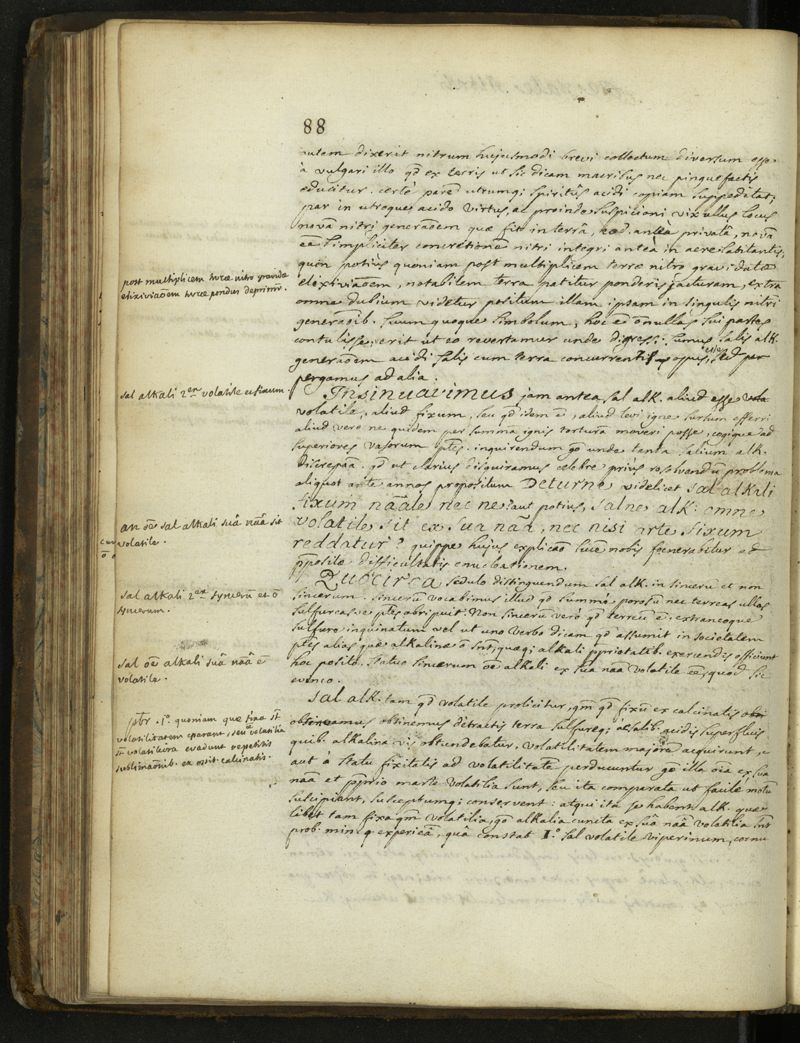 88
autem dixerit nitrum hujusmodi brevi collectum diversum esse
a vulgari illo qd ex terris ut sic dicam macribus nec pinguefactis
educitur. certè parem utrumq; spiritûs acidi copiam suppeditat;
par in utroque acido virtus, ac proinde suspicioni vix ullus locus
novâ nitri generãoem quæ fit in terrâ, antea privatâ, non
eê simpliciter concretionê nitri integri antea in aere habitantis,
quin potius quoniam post multiplicem terræ nitro gravidatæ
elixiviãoem, notabilem terra patitur ponderis jacturam, extra
omne dubium videtur positum illam ipsam in singulis nitri
generãoib. suum quoque simbolum, hoc ê nonnullas sui partes
contulisse; erit ut eo revertamur unde digressi sumus salis alk.
generãoem acidi salis cum terra concurrentis opus esse, sed per
pergamus ad alia.
post multiplicem terræ nitro gravidæ
elixiviãoem terræ pondus deprimr.
sal alkali 2ex volatile et fixum.
Insinuavimus jam antea sal alk. aliud esse vola
volatile, aliud fixum, seu qd idem ê, aliud levi igne sursum efferri
aliud vero ne quidem per summa ignis tortura moveri posse, cogique ad
superiores vasorum ptes. inquirendum gò unde tanta salium alk.
discrepãa. qd ut clarius disquiramus celebre prius resolvendû problema
aliquot ante annos propositum Deturne videlicet sal alkali
fixum nããle nec ne? aut potius, salne alk: omne
volatile sit ex sua nãâ, nec nisi arte fixum
reddatur? quippe hujus explicão lucê nobis foenerabitur ad
ppositæ difficultatis enubationem.
an oê sal alkali suâ nãâ sit
volatile.
Quocirca sedulo distinguendum sal alk. in sincerû et non
sincerum. sincerû vocabimus illud qd summâ porosû nec terreas ullas
sulfureas e ptes obripuit: Non sincerû verò qd terreû ê extraneoque
sulfure inquinatum vel ut uno verbo dicam qd assumit in societatem
ptes alias quæ alkalinæ õ snt, quæq; alkali pprietatib. exercendis officiunt
hoc posito. statuo sincerum oê alkali ex sua nãâ volatile eê, quod sic
evinco.
sal alkali 2ex syncerû et õ
syncerum.
sal oê alkali suâ nãâ ê
volatile.
Sal alk. tam qd volatile prolicitur, qm qd fixû ex calcinatis
obtinemus detractis terra sulfureq; e salib. acidis superfluis
quib. alkalina vis obtundebatur, volatilitatem majorê acquirunt,
aut a statu fixitatis ad volatilitatê perducuntur gò illa oîa ex sua
nãâ et pprio marte volatilia sunt, seu ita comparata ut facile motû
suscipiant, susceptumq; conservent: atqui ita se habent alk. quæ
libet tam fixa qm volatilia, gò alkalia cuncta ex suâ nãâ volatilia snt
prob. min. q. expericâ, quâ constat 1.o sal volatile viperinum, cornu
pbr. 1.o quoniam quæ fixa st
volatilitatem
volatiliora evadunt repetitis
sublimãonib. ex ossib. calcinatis.